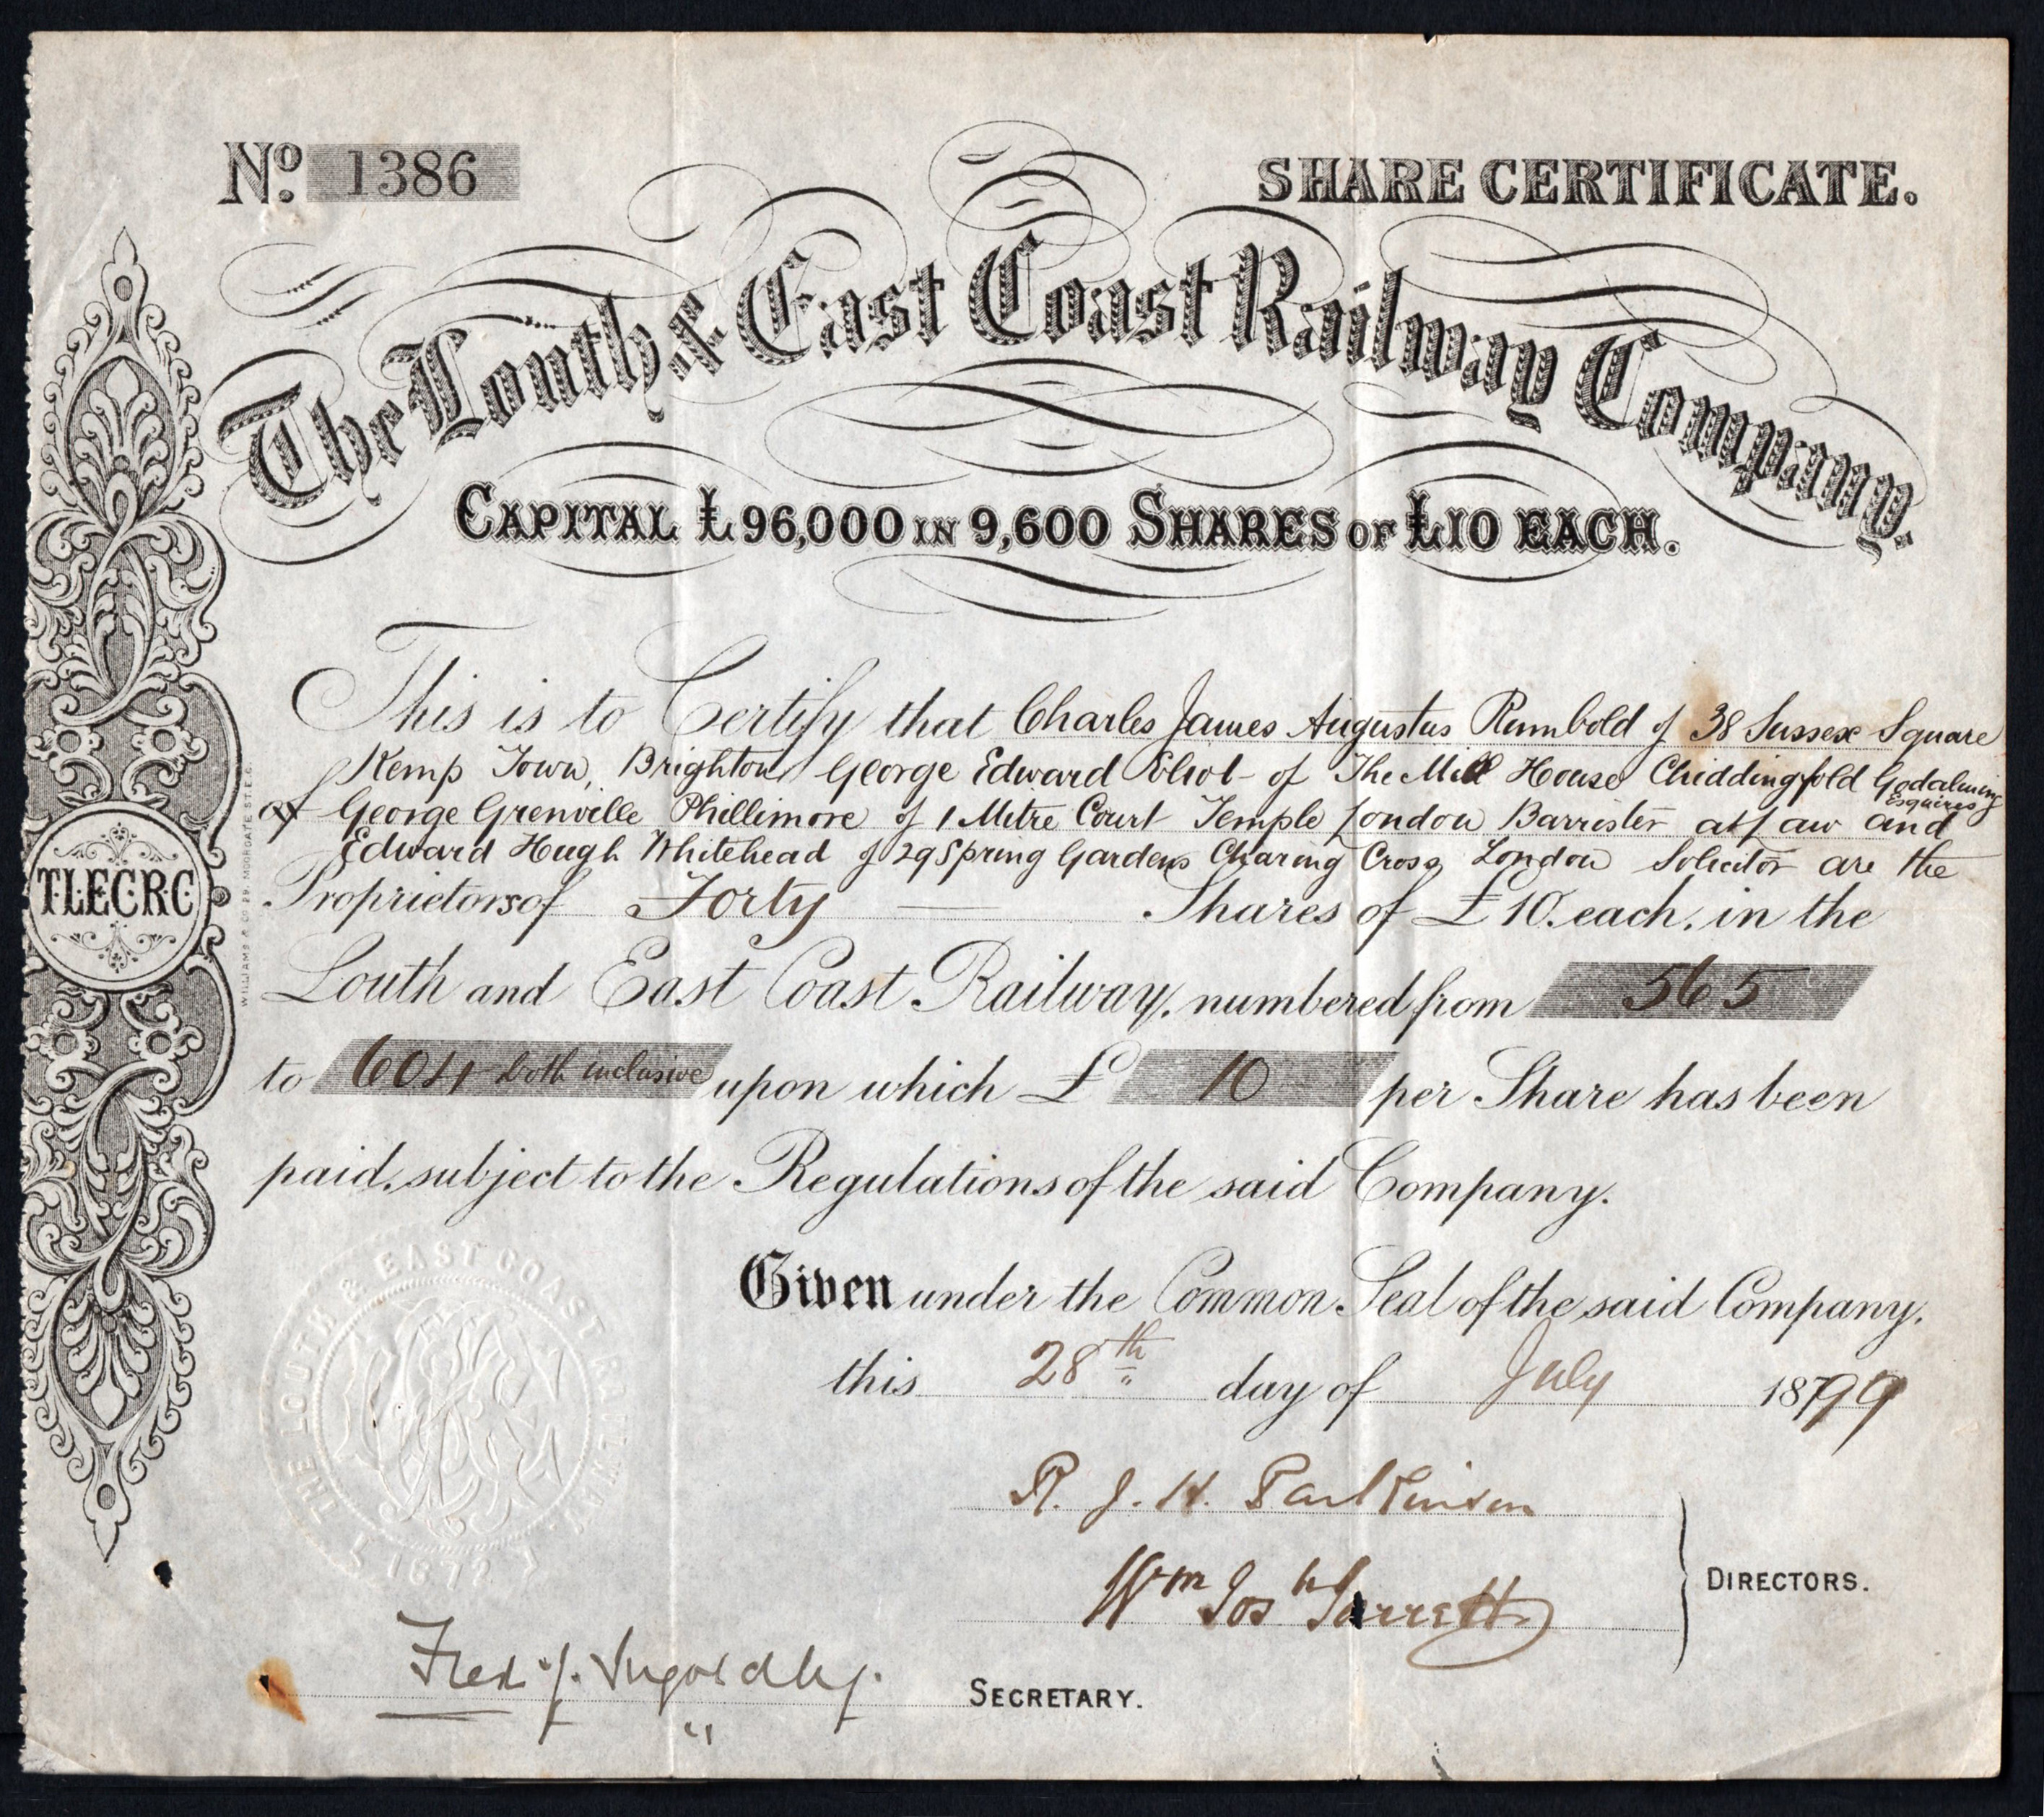 No. 1386
SHARE CERTIFICATE.
The Louth & East Coast Railway Company.
CAPITAL £96,000 IN 9,600 SHARES OF £10 EACH.
This is to Certify that Charles James Augustus Rumbold of 38 Sussex Square
Kemp Town, Brighton George Edward Eliot of The Mill House Chiddingfold Godalming
Esquires
George Grenville Phillimore of 1 Mitre Court Temple London Barrister at Law and
Edward Hugh Whitehead of 29 Spring Gardens Charing Cross London Solicitor are the
Proprietors of Forty Shares of £10. each, in the
Louth and East Coast Railway, numbered from 565
to 604 both inclusive upon which £ 10 per Share has been
paid, subject to the Regulations of the said Company.
Given under the Common Seal of the said Company.
this 28th day of July 1899
R. J. H. Parkinson
Wm Josh Garrett
DIRECTORS.
Fred J. Ingoldby.
SECRETARY.
TLECRC
WILLIAMS & CO 29, MOORGATE ST. E.C.
THE LOUTH & EAST COAST RAILWAY
1872